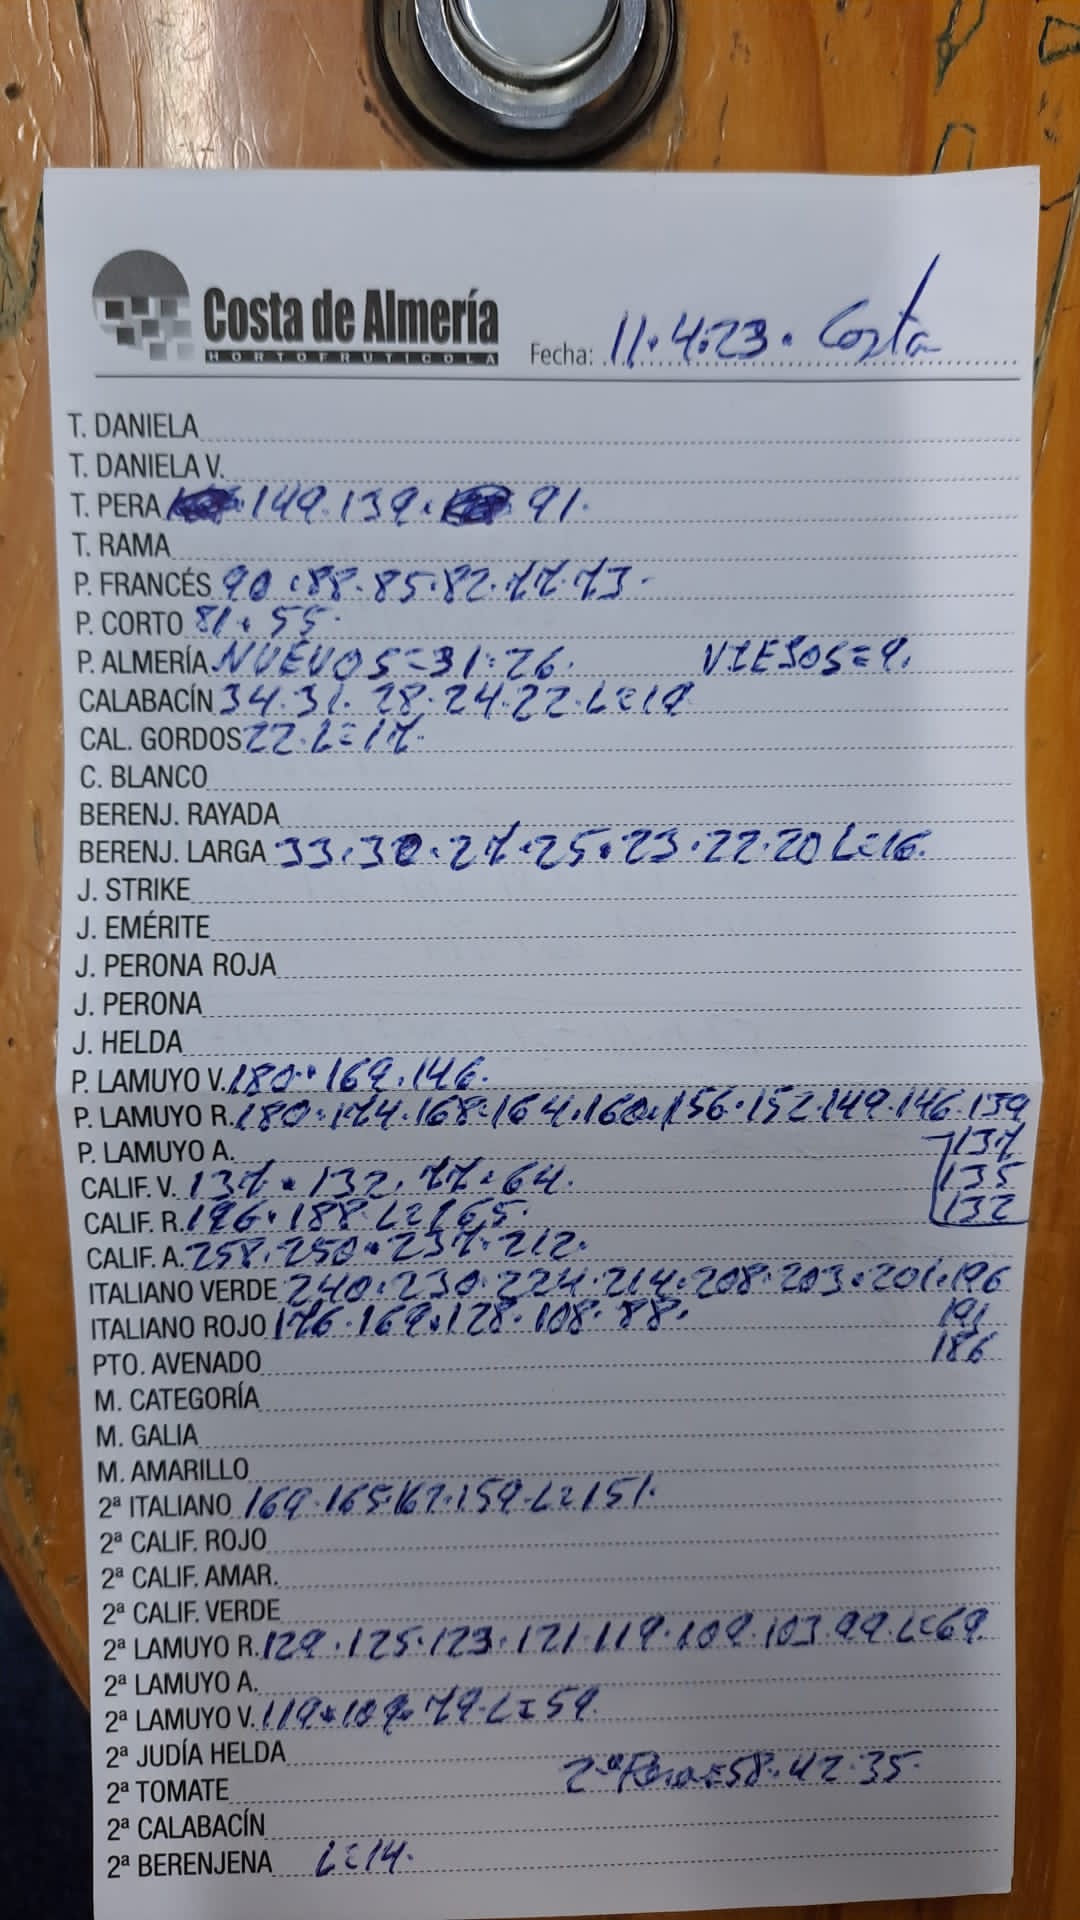 Costa de Almería
HORTOFRUTÍCOLA
Fecha: 11.4.23. Costa
T. DANIELA
T. DANIELA V.
T. PERA 149.139. 91.
T. RAMA
P. FRANCÉS 90.88.85.82.77.73.
P. CORTO 81.55.
P. ALMERÍA NUEVOS=31.26. VIEJOS=9.
CALABACÍN 34.31.28.24.22.L=19
CAL. GORDOS 22.L=17.
C. BLANCO
BERENJ. RAYADA
BERENJ. LARGA 33.30.27.25.23.22.20 L=16.
J. STRIKE
J. EMÉRITE
J. PERONA ROJA
J. PERONA
J. HELDA
P. LAMUYO V. 180.169.146.
P. LAMUYO R. 180.174.168.164.160.156.152.149.146.139
P. LAMUYO A. 137
CALIF. V. 137.132.77.64. 135
CALIF. R. 196.188 L=165. 132
CALIF. A. 258.250.237.212.
ITALIANO VERDE 240.230.224.214.208.203.201.196
ITALIANO ROJO 176.169.128.108.88. 191
PTO. AVENADO 186
M. CATEGORÍA
M. GALIA
M. AMARILLO
2ª ITALIANO 169.165.162.159.L=151.
2ª CALIF. ROJO
2ª CALIF. AMAR.
2ª CALIF. VERDE
2ª LAMUYO R. 129.125.123.121.119.109.103.99.L=69.
2ª LAMUYO A.
2ª LAMUYO V. 119.109.79.L=59.
2ª JUDÍA HELDA
2ª TOMATE 2ª Pera=58.42.35.
2ª CALABACÍN
2ª BERENJENA L=14.